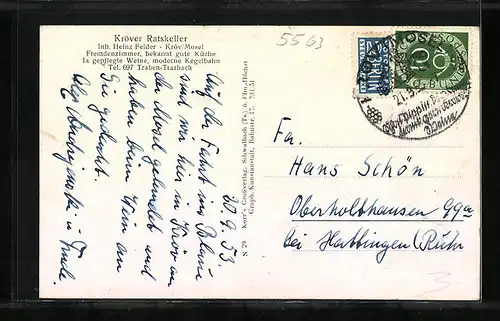 Kröver Ratskeller
Inh. Heinz Felder - Kröv/Mosel
Fremdenzimmer, bekannt gute Küche
Ia gepflegte Weine, moderne Kegelbahn
Tel. 697 Traben-Trarbach
5563
20
20.9.53
Auf der Fahrt ins Blaue
sind wir hier in Kröv an
der Mosel gelandet und
haben beim Wein an
Sie gedacht.
N 29 Korr's Großverlag, Schwalbach (Ts.) ü. Ffm.-Höchst
Graph. Kunstanstalt, Bolmstr. 17, 751/51
Fa.
Hans Schön
Oberholthausen 99a
bei Hattingen/Ruhr
3